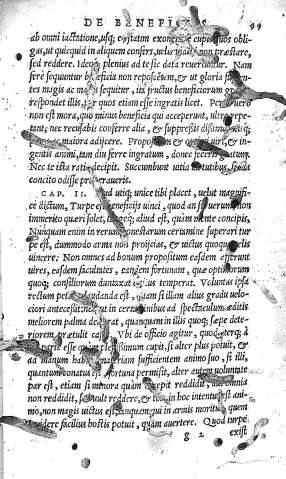 DE BENEFIC 99
ab omni iactatione, usq; est exone cupi nos obli-
gat, ut quicquid in aliquem confers, uelis non præstare,
sed reddere. Ideo plenius ad te sic data reuertuntur. Nam
ferè sequuntur beneficia non reposcentem, & ut gloria
tes magis ac magis sequitur, ita fructus beneficiorum gra
respondet illis, per quos etiam esse ingratis licet. Per uero
non est mora, quo minus beneficia qui acceperunt, ultro repe-
tant, nec recusabis conferre alia, & suppressis
maiora adjicere. Propositum uiri, & in-
gentis animi, tam diu ferre ingratum, donec feceris gratum.
Nec te ista ratio decipit. Succumbunt uitia uirtutibus, si
concito odisse properaueris.
CAP. II. ad utiq; unice tibi placet, uelut magnifi-
ce dictum, Turpe beneficijs uinci, quod an sit uerum non
immerito quæri solet, aliud est, quàm mente concipis,
Nunquam enim in rerum honestarum certamine superari tur
pe est, dummodo arma non proijcias, & uictus quoq; uelis
uincere. Non omnes ad bonum propositum easdem afferunt
uires, easdem facultates, eandem fortunam, quæ optimorum
quoq; consiliorum duntaxat exitus temperat. Voluntas ipsa
rectum petens laudanda est, etiam si illam alius gradu uelo-
ciori antecessit: non ut in certaminibus ad spectaculum æditis
meliorem palma declarat, quanquam in illis quoq; sæpe dete-
riorem prætulit casus. Vbi de officio agitur, quod uterq; à
parte esse quam plenissimum cupit, si alter plus potuit, &
ad manum habuit materiam sufficientem animo suo, si illi,
quantum conatus est fortuna permisit, alter autem uoluntate
par est, etiam si minora quàm accepit reddidit, aut omnia
non reddidit, sed uult reddere, & toto in hoc intentus est ani-
mo, non magis uictus est, quàm qui in armis moritur, quem
occidere facilius hostis potuit, quàm auertere. Quod turpe
g 2 exist